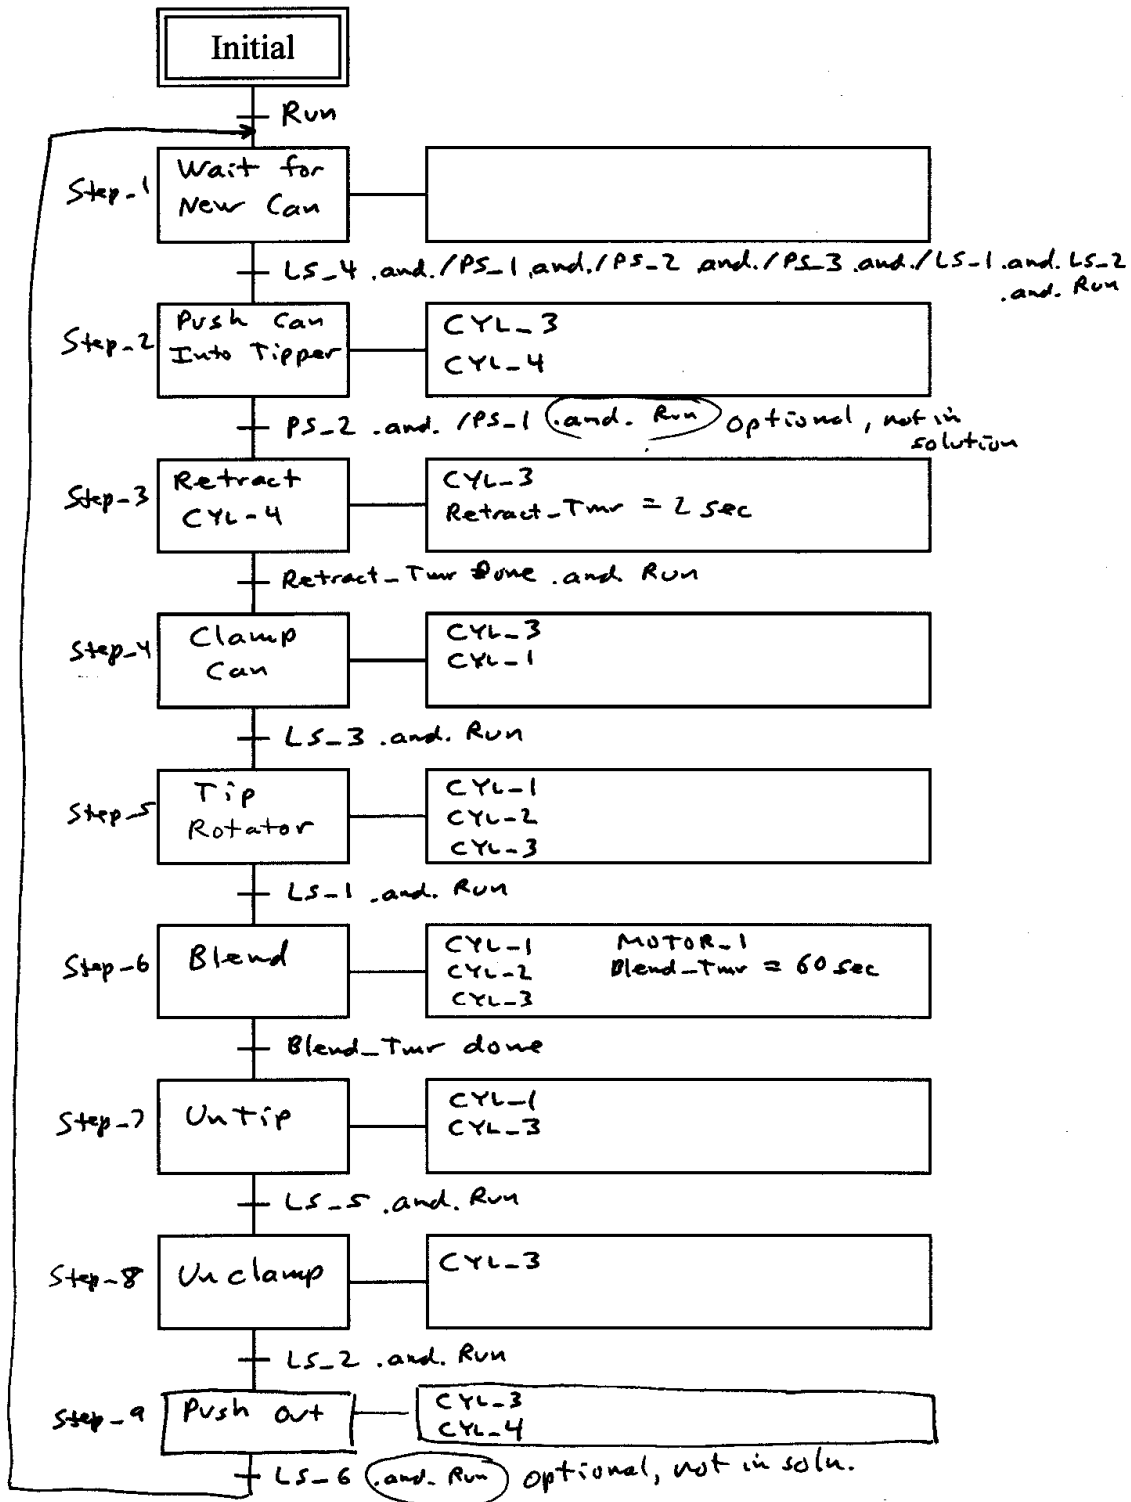 Initial
Run
Step-1
Wait for
New Can
LS_4 .and. /PS_1 .and. /PS_2 .and. /PS_3 .and. /LS_1 .and. LS_2
.and. Run
Step-2
Push Can
Into Tipper
CYL_3
CYL_4
PS_2 .and. /PS_1 .and. Run optional, not in
solution
Step-3
Retract
CYL-4
CYL_3
Retract_Tmr = 2 sec
Retract_Tmr Done .and. Run
Step-4
Clamp
Can
CYL_3
CYL_1
LS_3 .and. Run
Step-5
Tip
Rotator
CYL_1
CYL_2
CYL_3
LS_1 .and. Run
Step-6
Blend
CYL_1 MOTOR_1
CYL_2 Blend_Tmr = 60 sec
CYL_3
Blend_Tmr done
Step-7
UnTip
CYL_1
CYL_3
LS_5 .and. Run
Step-8
Unclamp
CYL_3
LS_2 .and. Run
Step-9
Push Out
CYL_3
CYL_4
LS_6 .and. Run optional, not in soln.